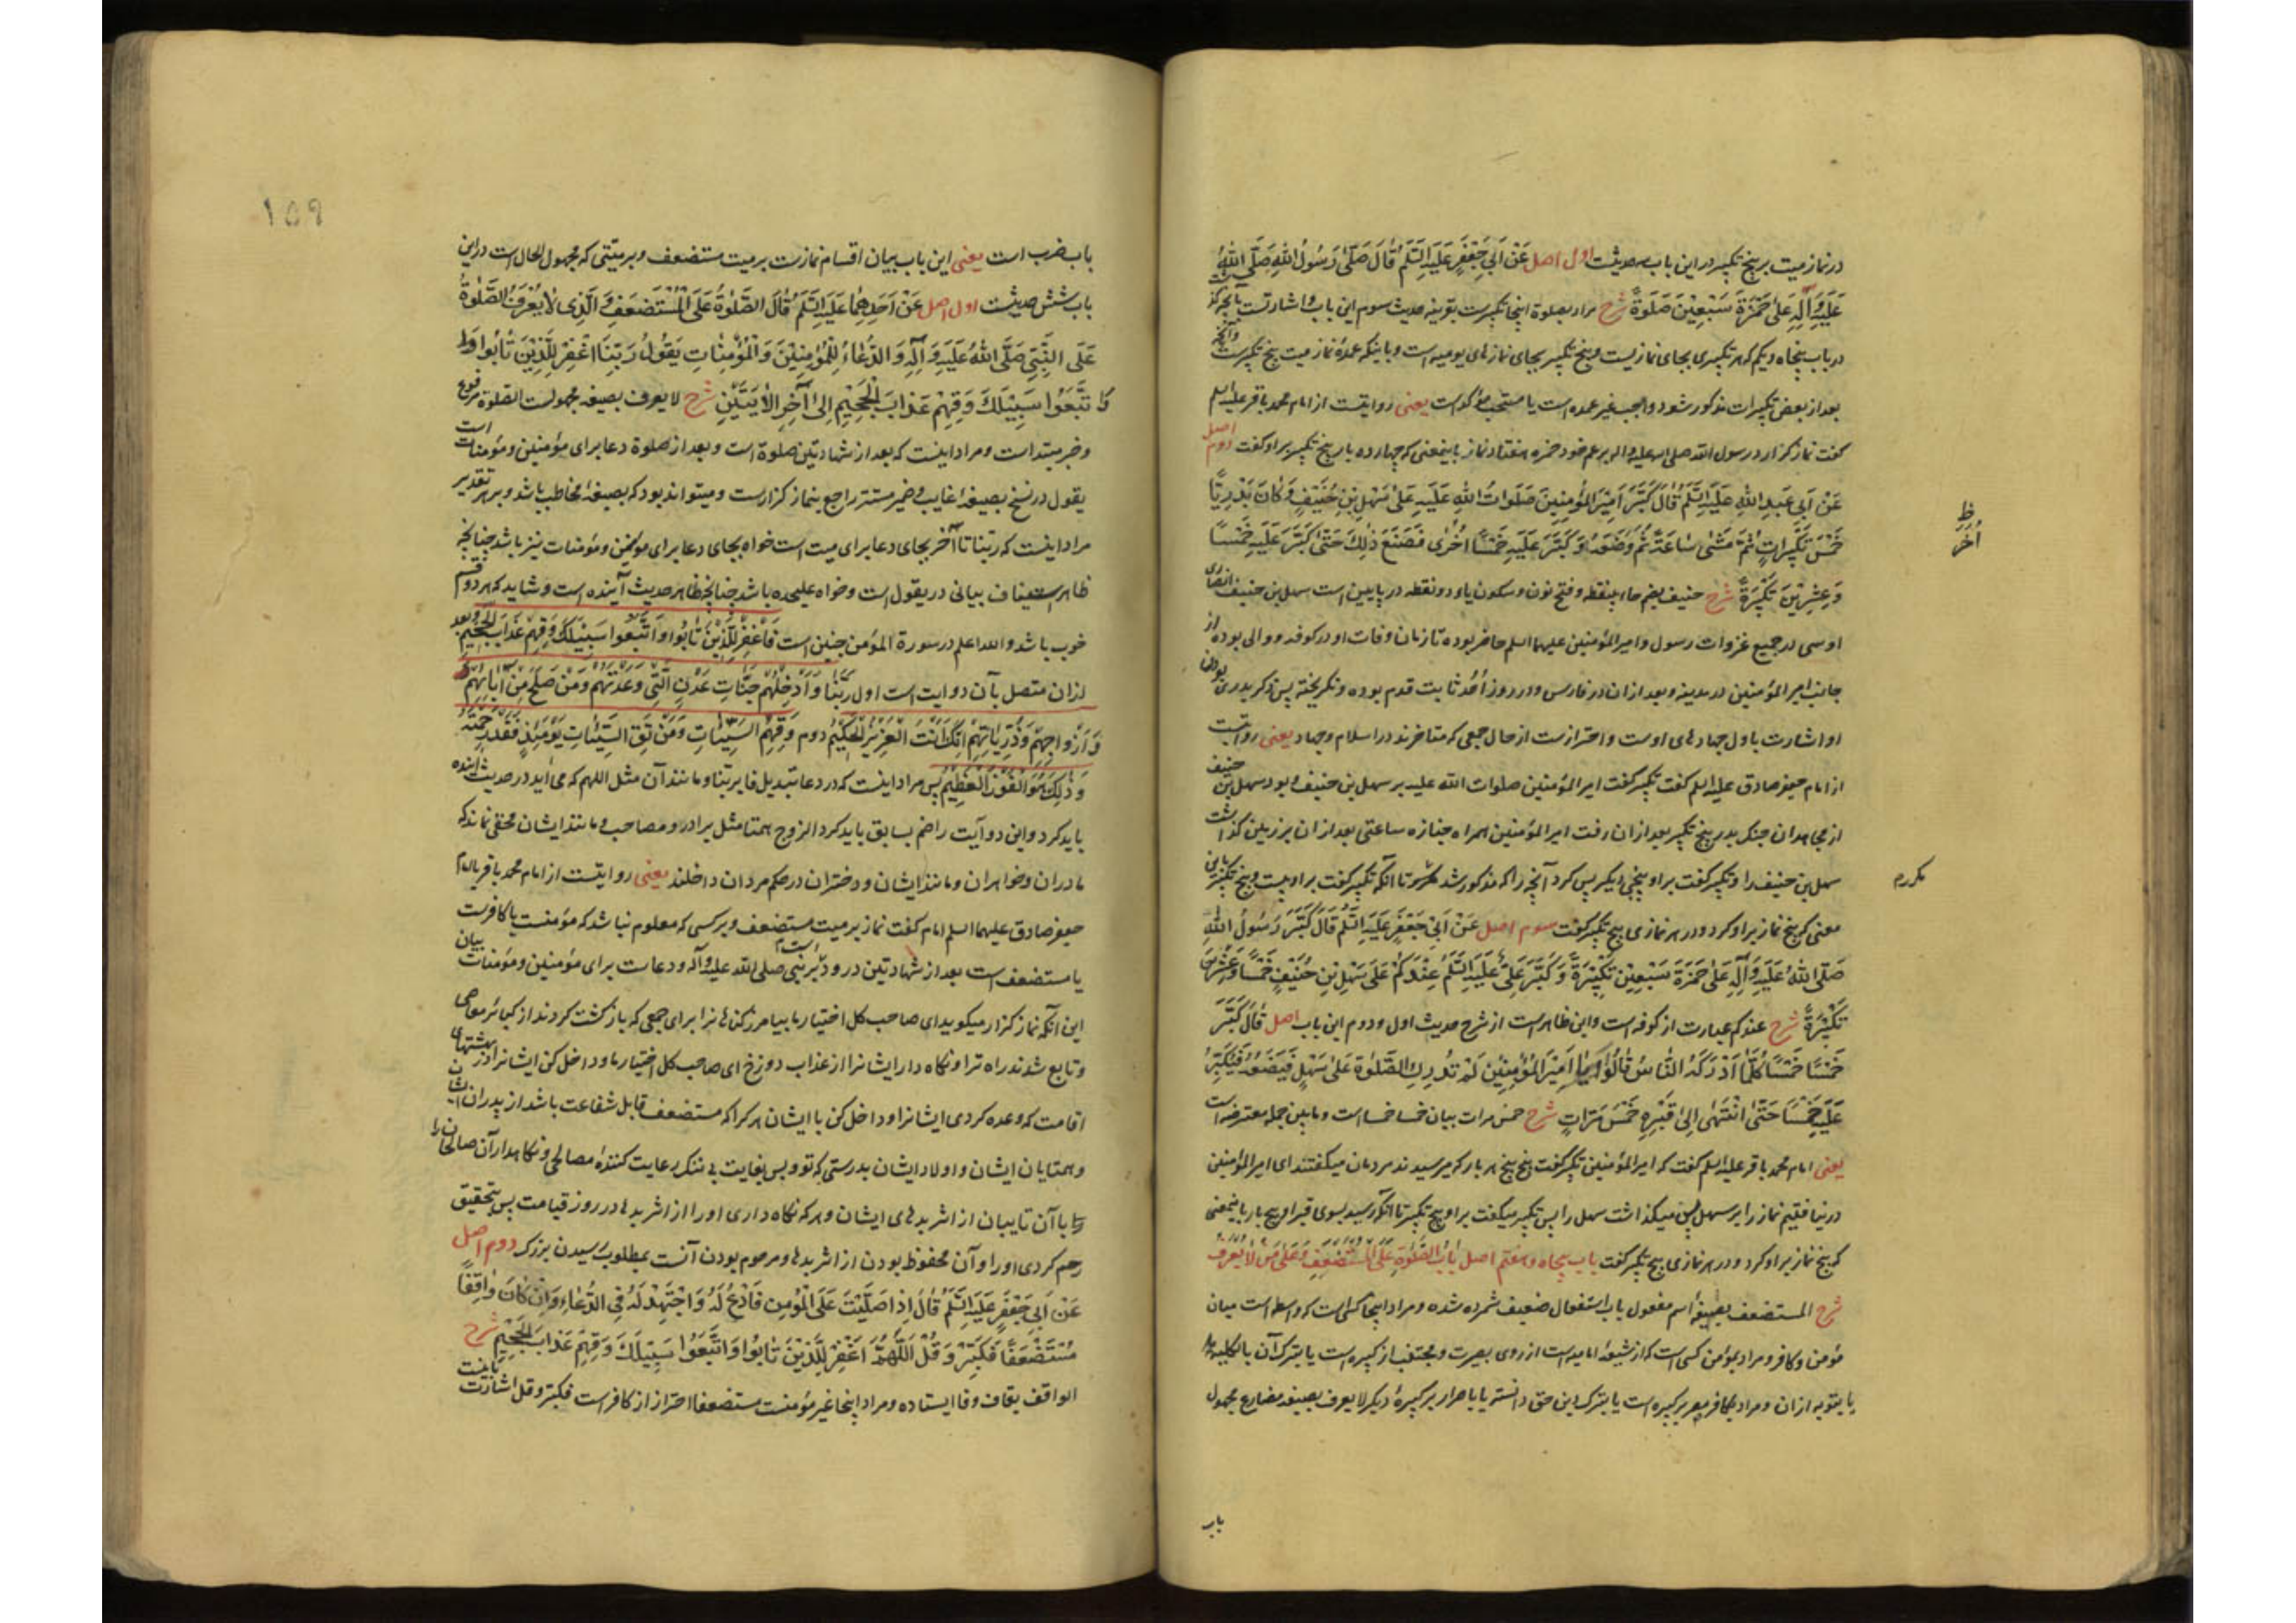 در نماز میت بر پنج تکبیر در این باب سه حدیثست اول اصل عَنْ اَبِی جَعْفَرٍ عَلَیْهِ السَّلَمُ قٰالَ صَلّٰی رَسُولُ اللّٰهِ صَلَّی اللّٰهُ
عَلَیْهِ وَآلِهِ عَلیٰ حَمْزَةَ سَبْعِیْنَ صَلٰوةً شرح مراد بصلوة اینجا تکبیرست بقرینه حدیث سوم این باب و اشارتست بآنچه گذشت
در باب پنجاه و یکم که هر تکبیری بجای نمازیست و پنج تکبیر بجای نمازهای یومیه است و باینکه عمدهٔ نماز میت پنج تکبیرست و آنچه
بعد از بعض تکبیرات مذکور شود واجب غیر عمده است یا مستحب مؤکد است یعنی روایتست از امام محمد باقر علیه السلم
گفت نماز گزارد رسول الله صلی الله علیه و اله بر عم خود حمزه هفتاد نماز باینمعنی که چهارده بار پنج تکبیر بر او گفت دوم اصل
عَنْ اَبِی عَبدِ اللّٰهِ عَلَیْهِ السَّلَمُ قٰالَ کَبَّرَ اَمِیْرُ المُؤْمِنِینَ صَلَوٰاتُ اللّٰهِ عَلَیْهِ عَلیٰ سَهْلِ بْنِ حُنَیْفٍ وَکٰانَ بَدْرِیّاً
خَمْسَ تَکْبِیْرٰاتٍ ثُمَّ مَشیٰ سٰاعَةً ثُمَّ وَضَعَهُ وَ کَبَّرَ عَلَیْهِ خَمْسًا اُخْریٰ فَصَنَعَ ذٰلِکَ حَتّٰی کَبَّرَ عَلَیْهِ خَمْسًا
ظ اُخَرَ
وَعِشْرِیْنَ تَکْبِیْرَةً شرح حنیف بضم حاء بینقطه و فتح نون و سکون یاء دو نقطه در پایین است سهل بن حنیف انصاری
اوسی در جمیع غزوات رسول و امیر المؤمنین علیهما السلم حاضر بوده تا زمان وفات او در کوفه و والی بوده از
جانب امیر المؤمنین در مدینه و بعد از ان در فارس و در روز اُحُد ثابت قدم بوده و نگریخته پس ذکر بدری بودن
او اشارت باول جهادهای اوست و احترازست از حال جمعی که متاخرند در اسلام و جهاد یعنی روایتست
از امام جعفر صادق علیه السلم گفت تکبیر گفت امیر المؤمنین صلوات الله علیه بر سهل بن حنیف و بود سهل بن حنیف
از مجاهدان جنک بدر پنج تکبیر بعد از ان رفت امیر المؤمنین همراه جنازه ساعتی بعد از ان بر زمین گذاشت
سهل بن حنیف را و تکبیر گفت بر او پنجی دیگر پس کرد آنچه را که مذکور شد تا آنکه تکبیر گفت بر او بیست و پنج تکبیر باین
مکرر م
معنی که پنج نماز بر او کرد و در هر نمازی پنج تکبیر گفت سوم اصل عَنْ اَبِیْ جَعْفَرٍ عَلَیْهِ السَّلَمُ قٰالَ کَبَّرَ رَسُولُ اللّٰهِ
صَلَّی اللّٰهُ عَلَیْهِ وَآلِهِ عَلیٰ حَمْزَةَ سَبْعِیْنَ تَکْبِیْرَةً وَ کَبَّرَ عَلِیٌّ عَلَیْهِ السَّلَمُ عِنْدَکُمْ عَلیٰ سَهْلِ بْنِ حُنَیْفٍ خَمْسًا وَعِشْرِیْنَ
تَکْبِیْرَةً شرح عندکم عبارت از کوفه است و این ظاهرست از شرح حدیث اول و دوم این باب اصل قٰالَ کَبَّرَ
خَمْسًا خَمْسًا کُلَّمٰا اَدْرَکَهُ النّٰاسُ قٰالُوْا یٰا اَمِیْرَ المُؤْمِنِیْنَ لَمْ نُدْرِکِ الصَّلوٰةَ عَلیٰ سَهْلٍ فَیَضَعُهُ فَیُکَبِّرُ
عَلَیْهِ خَمْسًا حَتّٰی انْتَهیٰ اِلیٰ قَبْرِهِ خَمْسَ مَرّٰاتٍ شرح خمس مرات بیان خمسا خمسا است و مابین جمله معترضه است
یعنی امام محمد باقر علیه السلم گفت که امیر المؤمنین تکبیر گفت پنج پنج هر بار که میرسیدند مردمان میگفتند ای امیر المؤمنین
در نیافتیم نماز را بر سهل پس میگذاشت سهل را پس تکبیر میگفت بر او پنج تکبیر تا آنکه رسید بسوی قبر او پنج بار باینمعنی
که پنج نماز بر او کرد و در هر نمازی پنج تکبیر گفت باب پنجاه و هفتم اصل بٰابُ الصَّلوٰةِ عَلَی المُسْتَضْعَفِ وَعَلیٰ مَنْ لٰا یُعْرَفُ
شرح المستضعف بصیغهٔ اسم مفعول باب استفعال ضعیف شمرده شده و مراد اینجا کسی است که واسطه است میان
مؤمن و کافر و مراد بمؤمن کسی است که از شیعهٔ امامیه است از روی بصیرت و مجتنب از کبیره است یا بترک آن بالکلیه
یا بتوبه از ان و مراد بکافر مصر بر کبیره است یا بترک دین حق دانسته یا باصرار بر کبیرهٔ دیگر لا یعرف بصیغه مضارع مجهول
باب
۱۵۹
باب ضرب است یعنی این باب بیان اقسام نمازست بر میت مستضعف و بر میّتی که مجهول الحال است در این
باب شش حدیثست اول اصل عَنْ اَحَدِهِمٰا عَلَیْهِ السَّلَمُ قٰالَ الصَّلٰوةُ عَلَی الْمُسْتَضْعَفِ وَ الَّذِی لٰا یُعْرَفُ الصَّلٰوةُ
عَلَی النَّبِیِّ صَلَّی اللّٰهُ عَلَیْهِ وَ آلِهِ وَ الدُّعٰاءُ لِلْمُؤْمِنِیْنَ وَ الْمُؤْمِنٰاتِ یَقُوْلُ رَبَّنٰا اغْفِرْ لِلَّذِیْنَ تٰابُوا
وَ اتَّبَعُوا سَبِیْلَکَ وَ قِهِمْ عَذٰابَ الْجَحِیْمِ اِلیٰ آخِرِ الْآیَتَیْنِ شرح لا یعرف بصیغه مجهولست الصلوة مرفوع
و خبر مبتداست و مراد اینست که بعد از شهادتین صلوة است و بعد از صلوة دعا برای مؤمنین و مؤمنات است
یقول در نسخ بصیغهٔ غایب و ضمیر مستتر راجع بنماز گزارست و میتواند بود که بصیغهٔ مخاطب باشد و بر هر تقدیر
مراد اینست که ربّنا تا آخر بجای دعا برای میت است خواه بجای دعا برای مؤمنین و مؤمنات نیز باشد چنانچه
ظاهر استیناف بیانی در یقول است و خواه علیحده باشد چنانچه ظاهر حدیث آینده است و شاید که هر دو قسم
خوب باشد و الله اعلم در سورة المؤمن چنین است فَاغْفِرْ لِلَّذِیْنَ تٰابُوا وَاتَّبَعُوا سَبِیْلَکَ وَقِهِمْ عَذٰابَ الْجَحِیْمِ و بعد
از ان متصل بآن دو آیت است اول رَبَّنٰا وَاَدْخِلْهُمْ جَنّٰاتِ عَدْنٍ الَّتِی وَعَدْتَهُمْ وَمَنْ صَلَحَ مِنْ اٰبٰائِهِمْ
وَ اَزْوٰاجِهِمْ وَذُرِّیّٰاتِهِمْ اِنَّکَ اَنْتَ الْعَزِیْزُ الْحَکِیْمُ دوم وَقِهِمُ السَّیِّئٰاتِ وَمَنْ تَقِ السَّیِّئٰاتِ یَوْمَئِذٍ فَقَدْ رَحِمْتَهُ
وَذٰلِکَ هُوَ الْفَوْزُ الْعَظِیْمُ پس مراد اینست که در دعا تبدیل فا بربّنا و مانند آن مثل اللهم که می آید در حدیث آینده
باید کرد و این دو آیت را ضم بسابق باید کرد الزوج همتا مثل برادر و مصاحب و مانند ایشان مخفی نماند که
مادران و خواهران و مانند ایشان و دختران در حکم مردان داخلند یعنی روایتست از امام محمد باقر یا امام
جعفر صادق علیهما السلم امام گفت نماز بر میت مستضعف و بر کسی که معلوم نباشد که مؤمنست یا کافرست
یا مستضعف است بعد از شهادتین درود است بر نبی صلی الله علیه و آله و دعاست برای مؤمنین و مؤمنات بیان
این آنکه نماز گزار میگوید ای صاحب کل اختیار ما بیامرز گناهانرا برای جمعی که بازگشت کردند از کبائر معاصی
و تابع شدند راه ترا و نگاه دار ایشانرا از عذاب دوزخ ای صاحب کل اختیار ما و داخل کن ایشانرا در بهشتهای
اقامت که وعده کردی ایشانرا و داخل کن با ایشان هر کرا که مستضعف قابل شفاعت باشد از پدران ایشان
و همتایان ایشان و اولاد ایشان بدرستی که تو و بس بغایت بی ننگ رعایت کنندهٔ مصالحی و نگاهدار آن صالحانرا
با آن تایبان از اثر بدهای ایشان و هر که نگاه داری او را از اثر بدها در روز قیامت پس بتحقیق
رحم کردی او را و آن محفوظ بودن از اثر بدها و مرحوم بودن آنست بمطلوب رسیدن بزرک دوم اصل
عَنْ اَبِی جَعْفَرٍ عَلَیْهِ السَّلَمُ قٰالَ اِذٰا صَلَّیْتَ عَلَی الْمُؤْمِنِ فَادْعُ لَهُ وَ اجْتَهِدْ لَهُ فِی الدُّعٰاءِ وَ اِنْ کٰانَ وٰاقِفًا
مُسْتَضْعَفًا فَکَبِّرْ وَ قُلْ اَللّٰهُمَّ اغْفِرْ لِلَّذِیْنَ تٰابُوا وَ اتَّبَعُوا سَبِیْلَکَ وَ قِهِمْ عَذٰابَ الْجَحِیْمِ شرح
الواقف بقاف و فا ایستاده و مراد اینجا غیر مؤمنست مستضعفا احتراز از کافرست فکبّر و قل اشارتست باینست